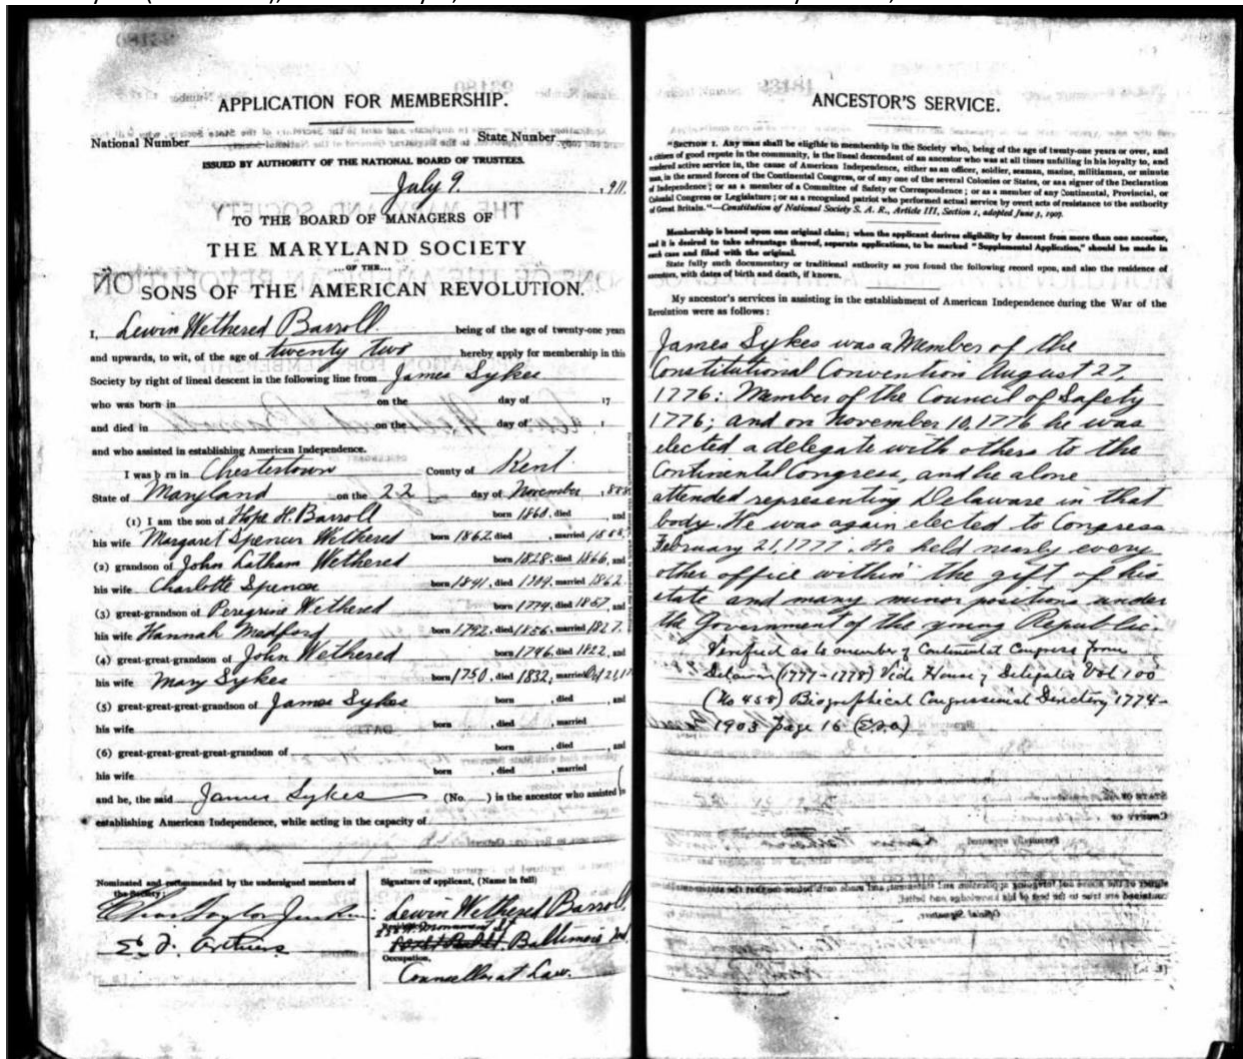 APPLICATION FOR MEMBERSHIP.
National Number State Number
ISSUED BY AUTHORITY OF THE NATIONAL BOARD OF TRUSTEES.
July 9. , 911.
TO THE BOARD OF MANAGERS OF
THE MARYLAND SOCIETY
OF THE
SONS OF THE AMERICAN REVOLUTION.
I, Lewin Wethered Barroll being of the age of twenty-one years
and upwards, to wit, of the age of twenty two hereby apply for membership in this
Society by right of lineal descent in the following line from James Sykes
who was born in on the day of 17
and died in on the day of 1
and who assisted in establishing American Independence.
I was born in Chestertown County of Kent
State of Maryland on the 22 day of November
(1) I am the son of Hope H. Barroll born 1860, died , and
his wife Margaret Spencer Wethered born 1862, died , married
(2) grandson of John Latham Wethered born 1828, died 1866, and
his wife Charlotte Spencer born 1841, died 1904, married 1862
(3) great-grandson of Peregrine Wethered born 1779, died 1857, and
his wife Hannah Medford born 1792, died 1856, married 1827.
(4) great-great-grandson of John Wethered born 1746, died 1822, and
his wife Mary Sykes born 1750, died 1832, married
(5) great-great-great-grandson of James Sykes born , died , and
his wife born , died , married
(6) great-great-great-great-grandson of born , died , and
his wife born , died , married
and he, the said James Sykes (No. ) is the ancestor who assisted in
establishing American Independence, while acting in the capacity of
Nominated and recommended by the undersigned members of
the Society:
Signature of applicant, (Name in full)
Lewin Wethered Barroll
Baltimore Md
Occupation,
Councellor at Law.
ANCESTOR'S SERVICE.
"SECTION 1. Any man shall be eligible to membership in the Society who, being of the age of twenty-one years or over, and
a citizen of good repute in the community, is the lineal descendant of an ancestor who was at all times unfailing in his loyalty to, and
rendered active service in, the cause of American Independence, either as an officer, soldier, seaman, marine, militiaman, or minute
man, in the armed forces of the Continental Congress, or of any one of the several Colonies or States, or as a signer of the Declaration
of Independence; or as a member of a Committee of Safety or Correspondence; or as a member of any Continental, Provincial, or
Colonial Congress or Legislature; or as a recognized patriot who performed actual service by overt acts of resistance to the authority
of Great Britain."—Constitution of National Society S. A. R., Article III, Section 1, adopted June 3, 1907.
Membership is based upon one original claim; when the applicant derives eligibility by descent from more than one ancestor,
and it is desired to take advantage thereof, separate applications, to be marked "Supplemental Application," should be made in
each case and filed with the original.
State fully such documentary or traditional authority as you found the following record upon, and also the residence of
ancestors, with dates of birth and death, if known.
My ancestor's services in assisting in the establishment of American Independence during the War of the
Revolution were as follows:
James Sykes was a Member of the
Constitutional Convention August 27,
1776: Member of the Council of Safety
1776; and on November 10, 1776 he was
elected a delegate with others to the
Continental Congress, and he alone
attended representing Delaware in that
body. He was again elected to Congress
February 21, 1777. He held nearly every
other office within the gift of his
state and many minor positions under
the Government of the young Republic.
Verified as to member of Continental Congress from
Delaware (1777-1778) Vide House of Delegates Vol 100
(No 458) Biographical Congressional Directory 1774-
1903 page 16